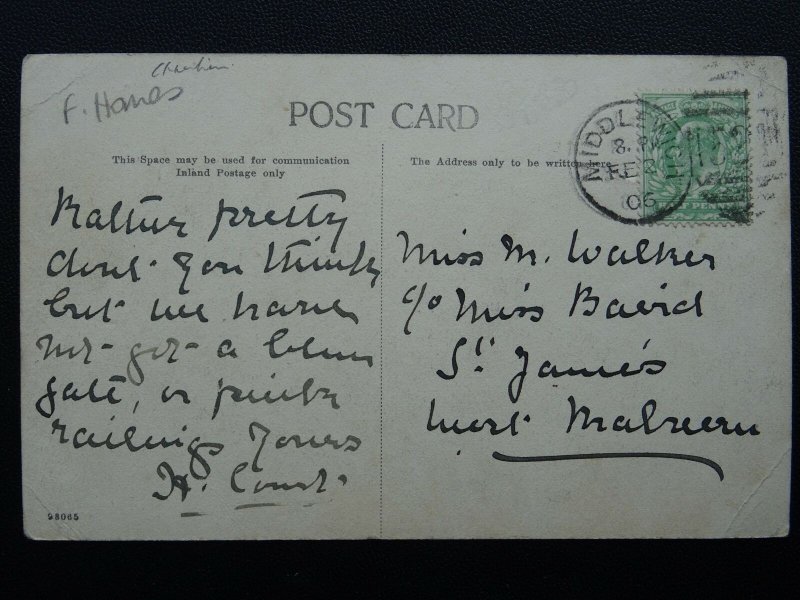 F. Hanes
POST CARD
This Space may be used for communication
Inland Postage only
The Address only to be written here
MIDDLE
FE 2
06
Rather pretty
dont you think
but we have
not got a blue
gate, or pink
railings Yours
H. Court.
Miss M. Walker
c/o Miss Baird
St. James's
West Malvern
98065